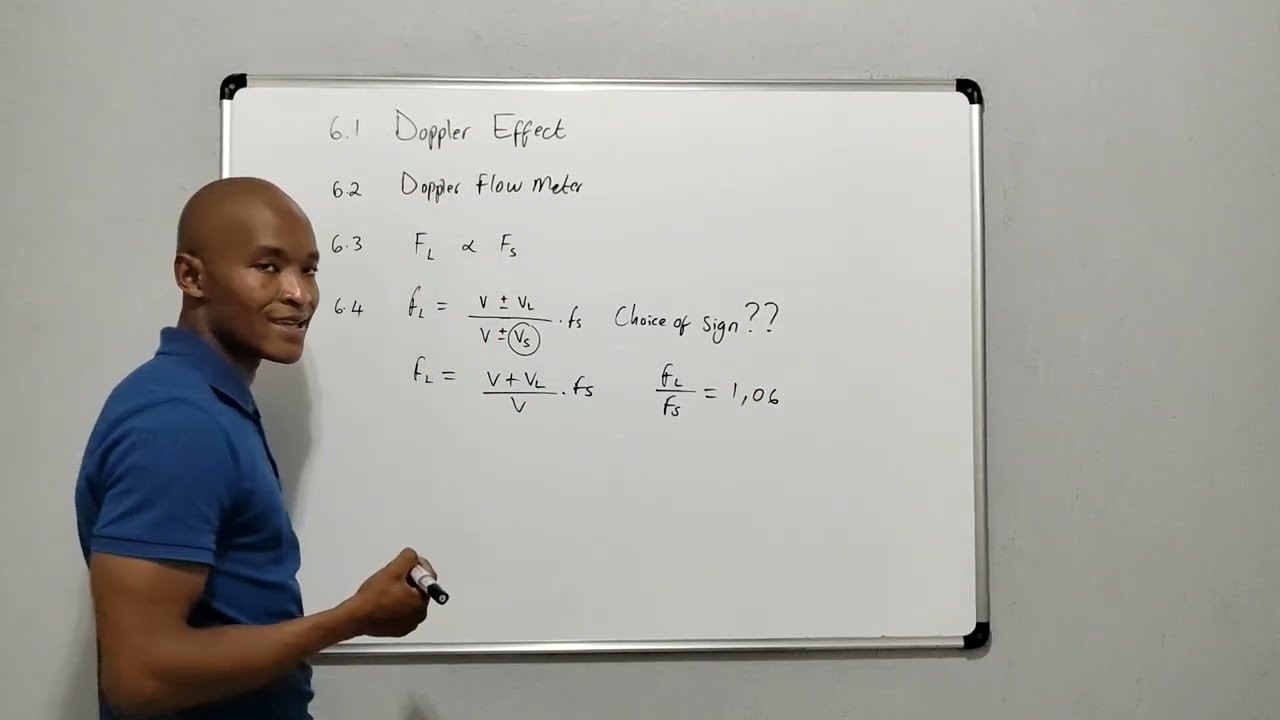 6.1 Doppler Effect
6.2 Doppler Flow Meter
6.3 F_L ∝ F_S
6.4 f_L = (V ± V_L)/(V ± V_S) . fs Choice of Sign??
f_L = (V + V_L)/V . fs f_L/fs = 1,06